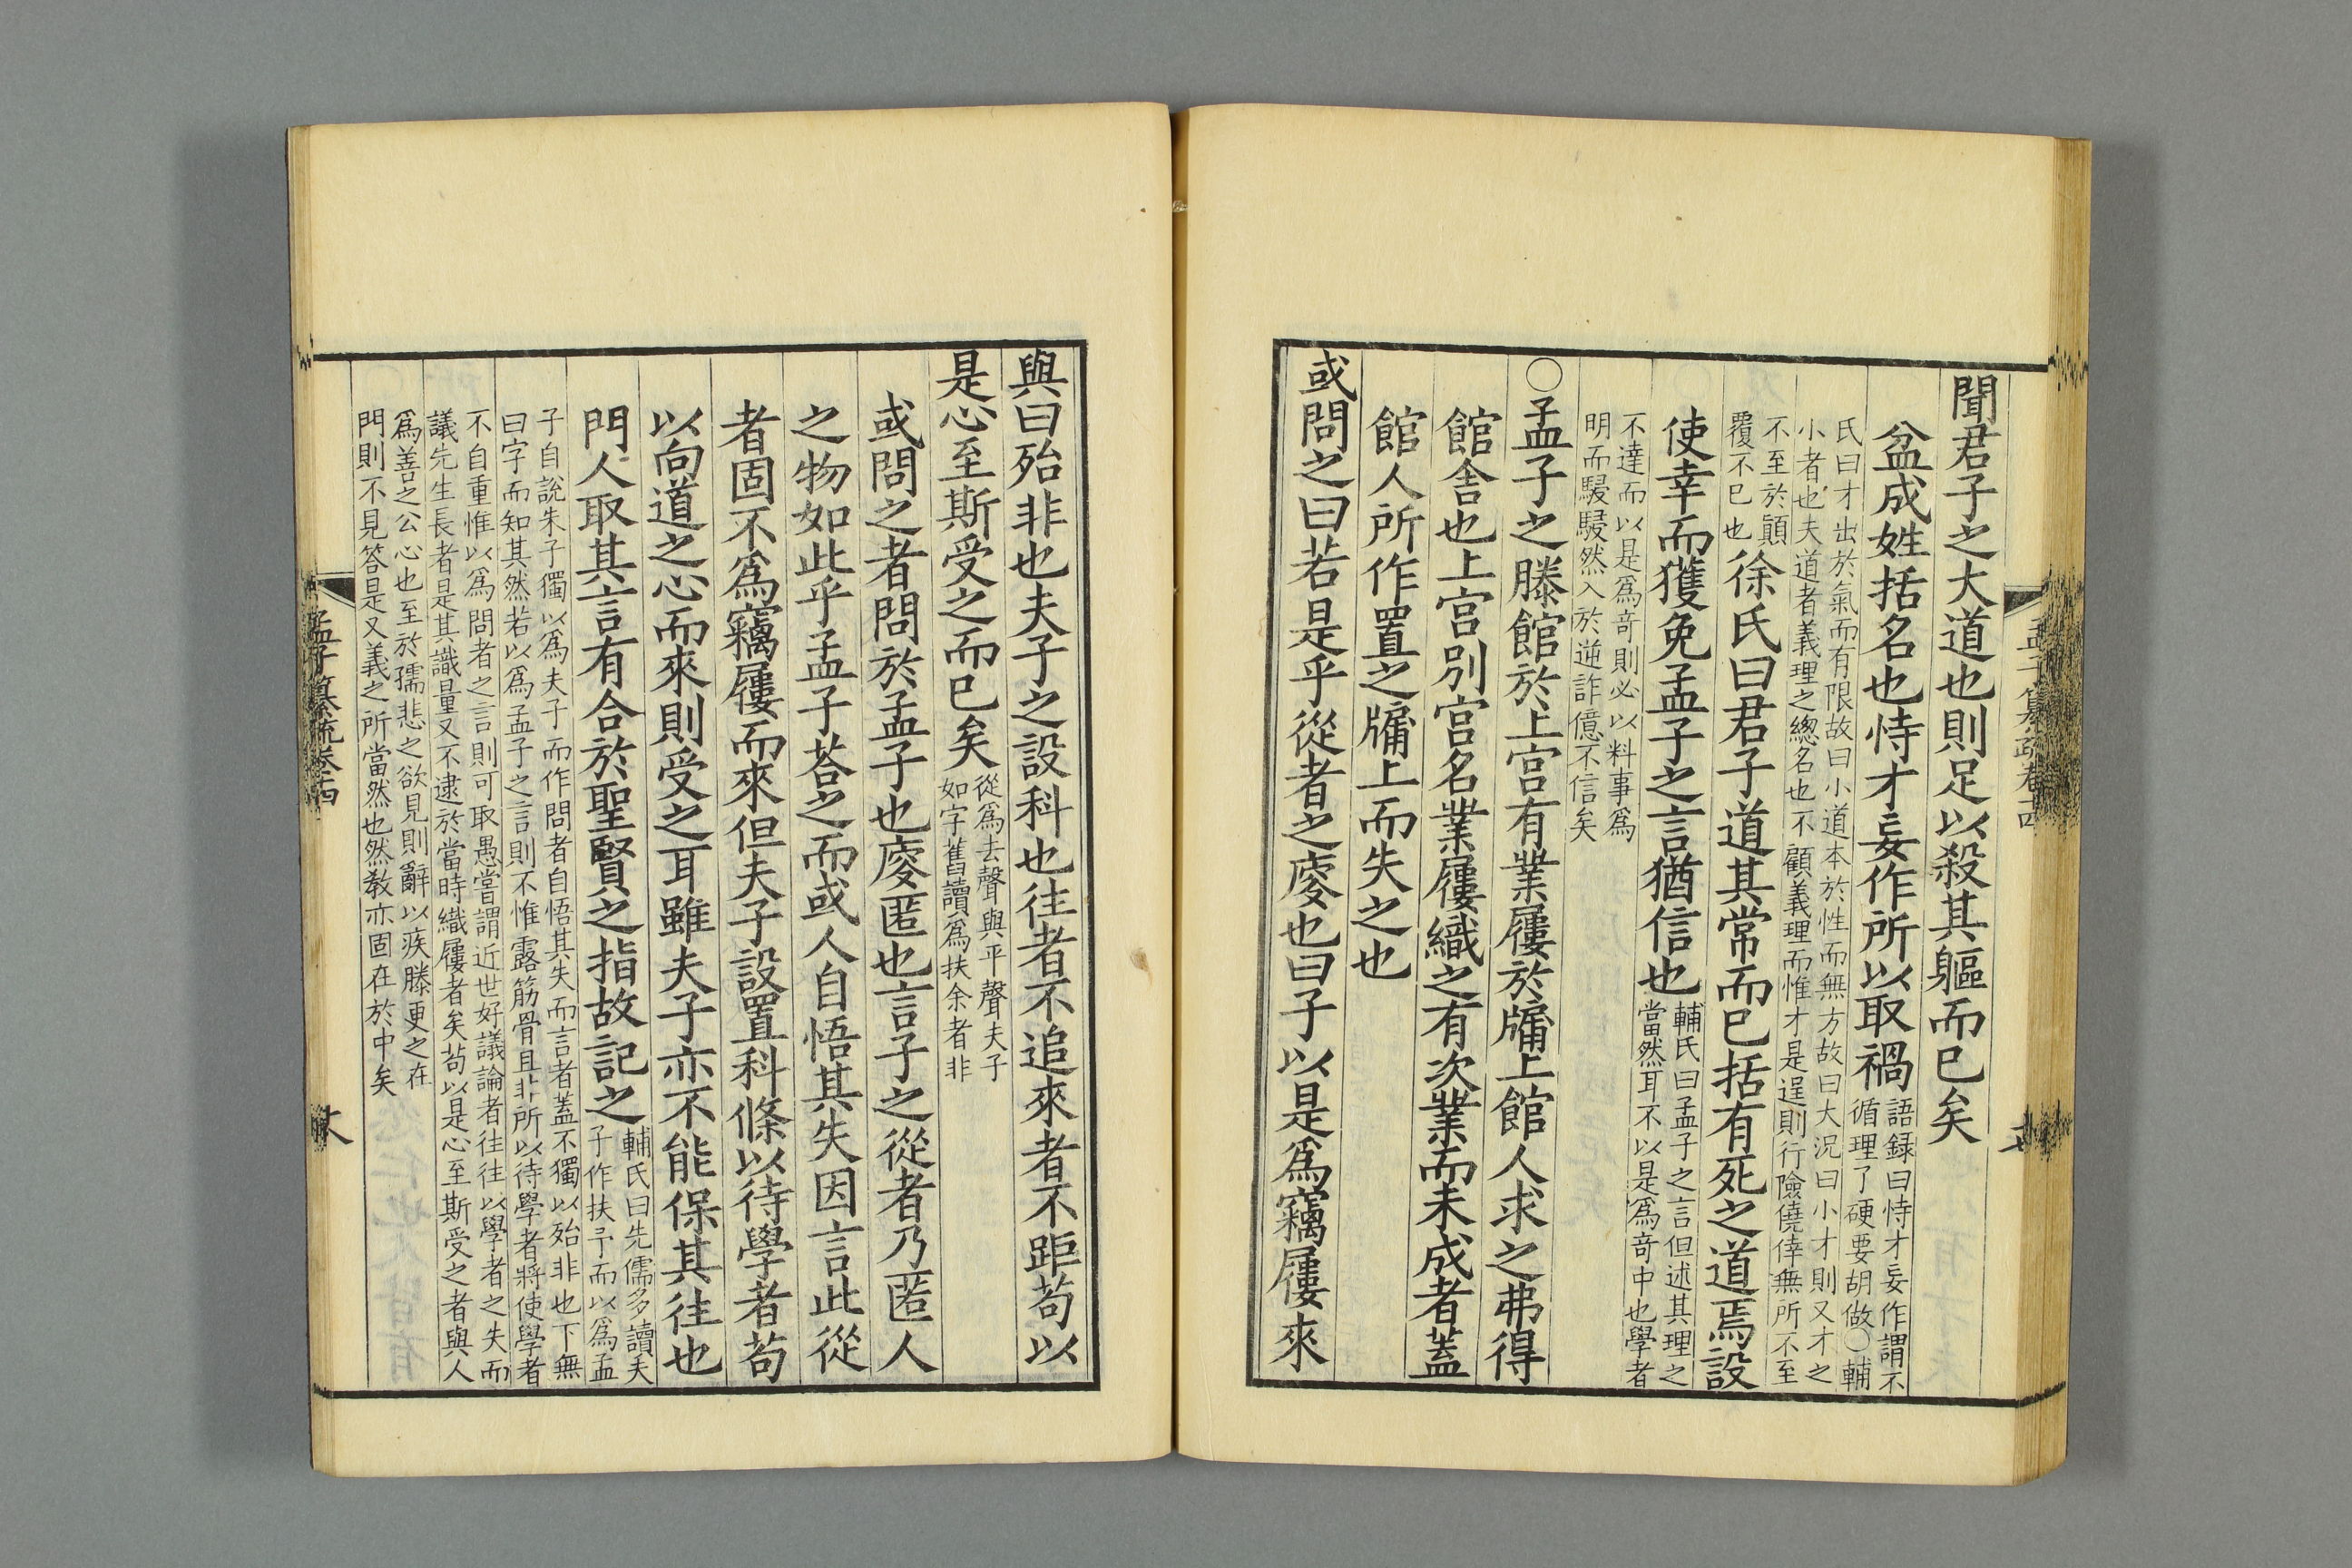 聞君子之大道也則足以殺其軀而已矣
盆成姓括名也恃才妄作所以取禍
語録曰恃才妄作謂不
循理了硬要胡做〇輔
氏曰才出於氣而有限故曰小道本於性而無方故曰大況曰小才則又才之
小者也夫道者義理之總名也不顧義理而惟才是逞則行險僥倖無所不至
不至於顛
覆不已也
徐氏曰君子道其常而已括有死之道焉設
使幸而獲免孟子之言猶信也
輔氏曰孟子之言但述其理之
當然耳不以是爲奇中也學者
不達而以是爲奇則必以料事爲
明而駸駸然入於逆詐億不信矣
〇孟子之滕館於上宮有業屨於牖上館人求之弗得
館舎也上宮別宮名業屨織之有次業而未成者蓋
館人所作置之牖上而失之也
或問之曰若是乎從者之廀也曰子以是爲竊屨來
與曰殆非也夫子之設科也往者不追來者不距苟以
是心至斯受之而已矣
從爲去聲與平聲夫子
如字舊讀爲扶余者非
或問之者問於孟子也廀匿也言子之從者乃匿人
之物如此乎孟子荅之而或人自悟其失因言此從
者固不爲竊屨而來但夫子設置科條以待學者苟
以向道之心而來則受之耳雖夫子亦不能保其往也
門人取其言有合於聖賢之指故記之
輔氏曰先儒多讀夫
子作扶予而以爲孟
子自說朱子獨以爲夫子而作問者自悟其失而言者蓋不獨以殆非也下無
曰字而知其然若以爲孟子之言則不惟露筋骨且非所以待學者將使學者
不自重惟以爲問者之言則可取愚嘗謂近世好議論者往往以學者之失而
議先生長者是其識量又不逮於當時織屨者矣苟以是心至斯受之者與人
爲善之公心也至於孺悲之欲見則辭以疾滕更之在
門則不見答是又義之所當然也然敎亦固在於中矣
孟子纂疏卷十四